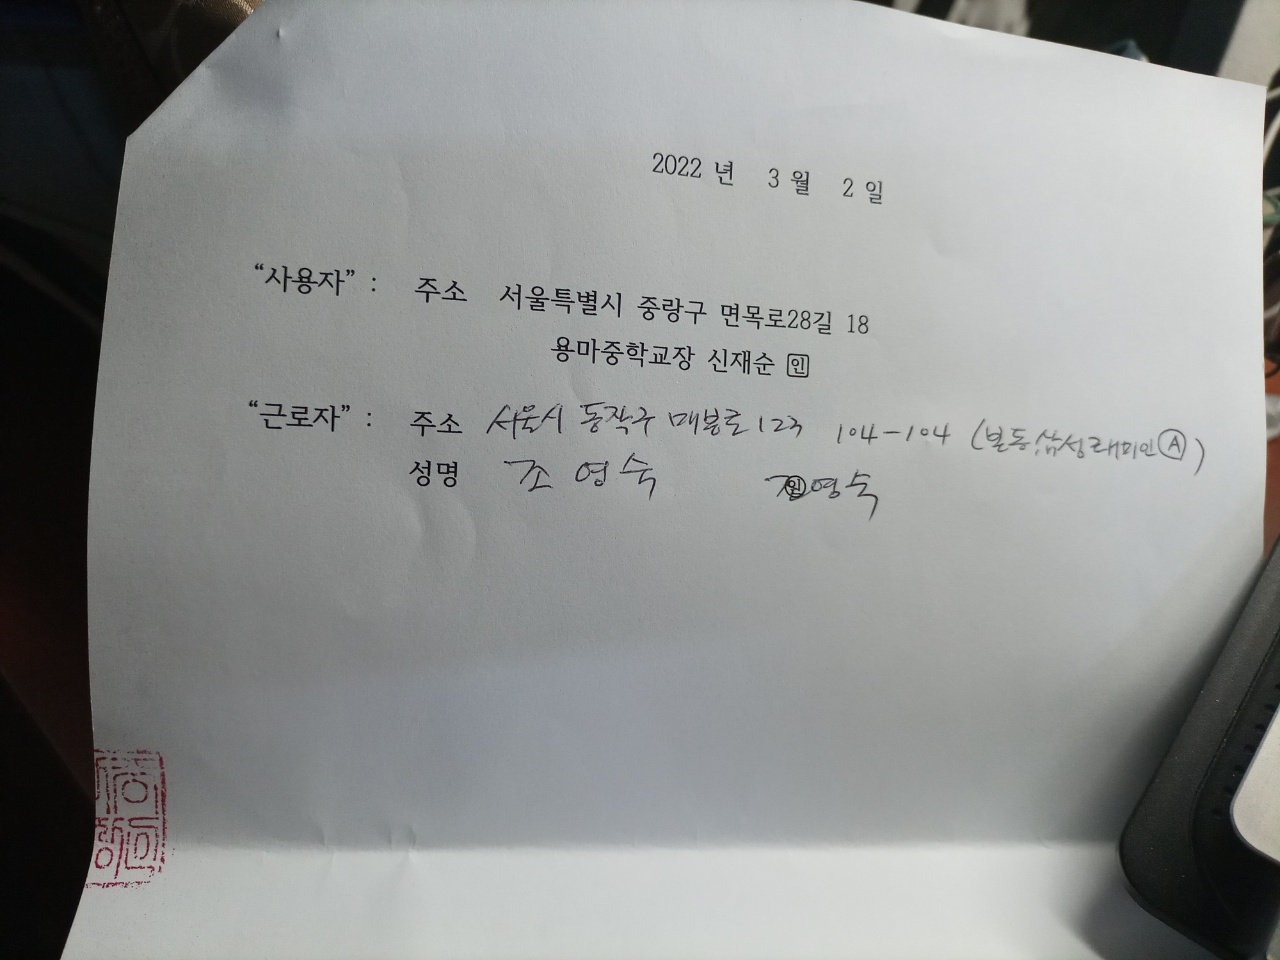 2022 년 3 월 2 일
“사용자” : 주소 서울특별시 중랑구 면목로28길 18
용마중학교장 신재순 인
“근로자” : 주소 서울시 동작구 매봉로 123 104-104 (본동,삼성래미안Ⓐ)
성명 조영숙 인 조영숙